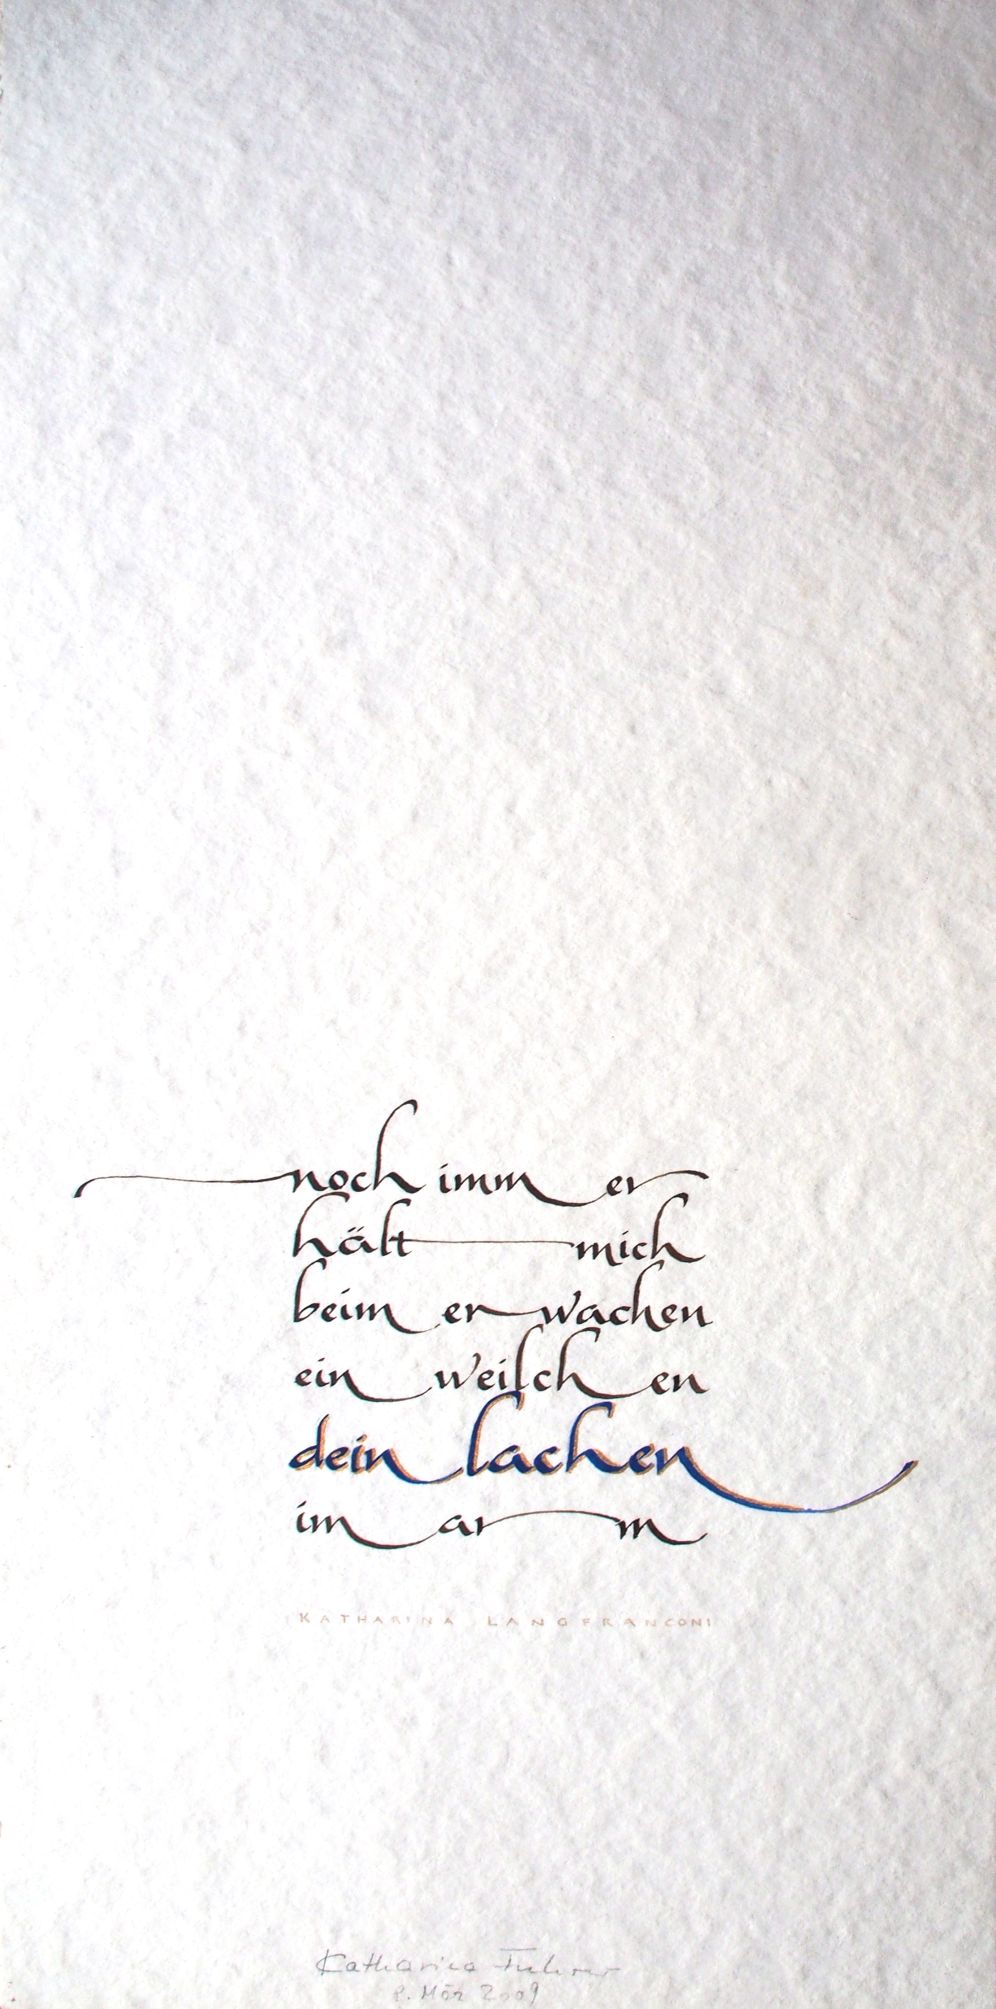 noch immer
hält mich
beim erwachen
ein weilchen
dein lachen
im arm
KATHARINA LANGFRANCONI
Katharina Fuhrer
8. Mär 2009